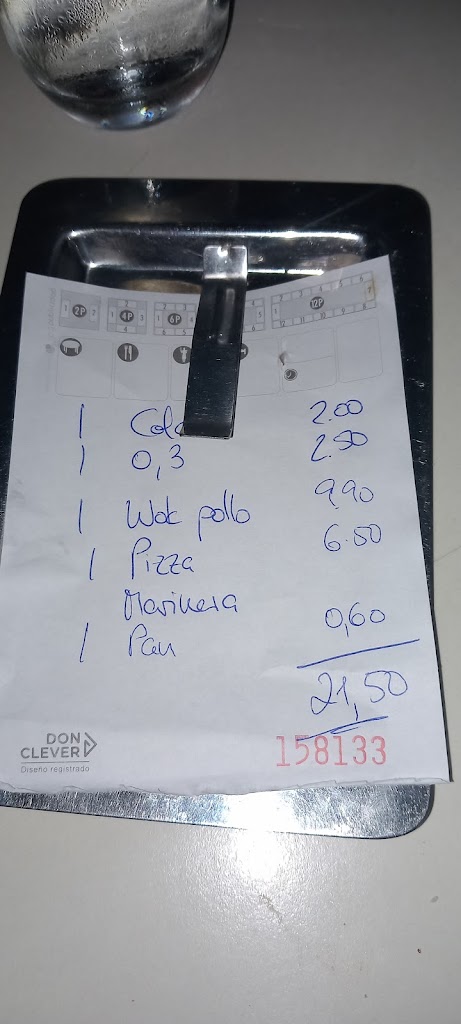 1 2P 2
1 4P 3
1 6P 4
12P
1 Cola 2.00
1 0,3 2.50
1 Wok pollo 9.90
1 Pizza 6.50
Marinera
1 Pan 0,60
21,50
DON
CLEVER
Diseño registrado
158133